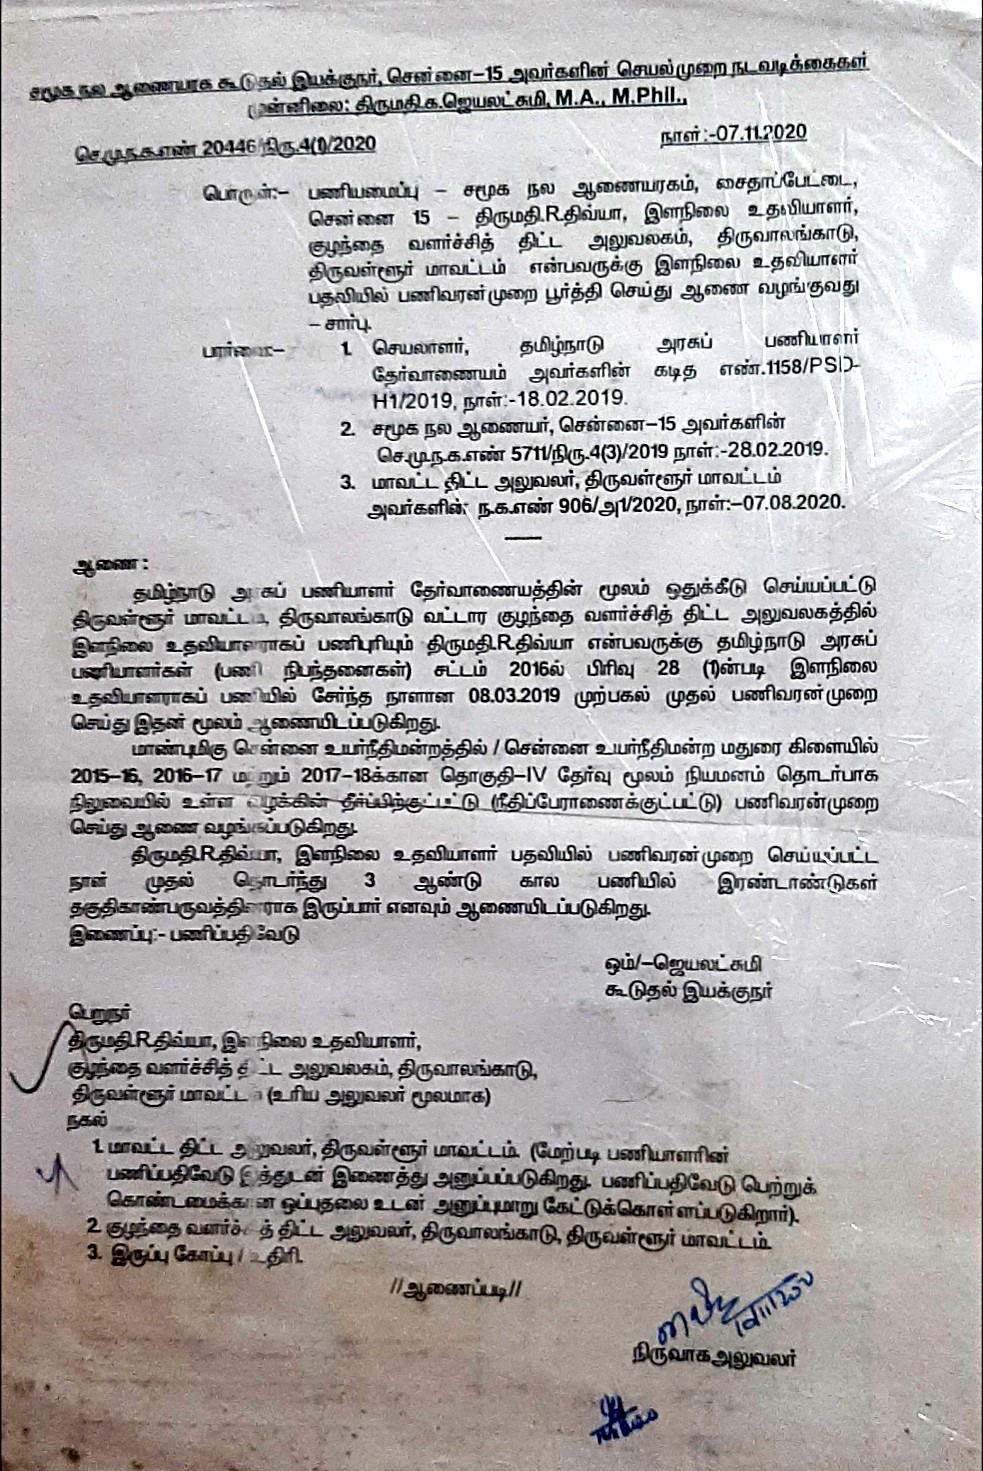 சமூக நல ஆணையரக கூடுதல் இயக்குநர், சென்னை-15 அவர்களின் செயல்முறை நடவடிக்கைகள்
முன்னிலை: திருமதி.க.ஜெயலட்சுமி, M.A., M.Phil.,
செ.மு.ந.க.எண் 20446/நிரு.4(1)/2020 நாள்:-07.11.2020
பொருள்:- பணியமைப்பு – சமூக நல ஆணையரகம், சைதாப்பேட்டை,
சென்னை 15 – திருமதி.R.திவ்யா, இளநிலை உதவியாளர்,
குழந்தை வளர்ச்சித் திட்ட அலுவலகம், திருவாலங்காடு,
திருவள்ளூர் மாவட்டம் என்பவருக்கு இளநிலை உதவியாளர்
பதவியில் பணிவரன்முறை பூர்த்தி செய்து ஆணை வழங்குவது
– சார்பு.
பார்வை:- 1. செயலாளர், தமிழ்நாடு அரசுப் பணியாளர்
தேர்வாணையம் அவர்களின் கடித எண்.1158/PSD-
H1/2019, நாள்:-18.02.2019.
2. சமூக நல ஆணையர், சென்னை-15 அவர்களின்
செ.மு.ந.க.எண் 5711/நிரு.4(3)/2019 நாள்:-28.02.2019.
3. மாவட்ட திட்ட அலுவலர், திருவள்ளூர் மாவட்டம்
அவர்களின்; ந.க.எண் 906/அ1/2020, நாள்:–07.08.2020.
ஆணை :
தமிழ்நாடு அரசுப் பணியாளர் தேர்வாணையத்தின் மூலம் ஒதுக்கீடு செய்யப்பட்டு
திருவள்ளூர் மாவட்டம், திருவாலங்காடு வட்டார குழந்தை வளர்ச்சித் திட்ட அலுவலகத்தில்
இளநிலை உதவியாளராகப் பணிபுரியும் திருமதி.R.திவ்யா என்பவருக்கு தமிழ்நாடு அரசுப்
பணியாளர்கள் (பணி நிபந்தனைகள்) சட்டம் 2016ல் பிரிவு 28 (1)ன்படி இளநிலை
உதவியாளராகப் பணியில் சேர்ந்த நாளான 08.03.2019 முற்பகல் முதல் பணிவரன்முறை
செய்து இதன் மூலம் ஆணையிடப்படுகிறது.
மாண்புமிகு சென்னை உயர்நீதிமன்றத்தில் / சென்னை உயர்நீதிமன்ற மதுரை கிளையில்
2015–16, 2016–17 மற்றும் 2017–18க்கான தொகுதி–IV தேர்வு மூலம் நியமனம் தொடர்பாக
நிலுவையில் உள்ள வழக்கின் தீர்ப்பிற்குட்பட்டு (நீதிப்பேராணைக்குட்பட்டு) பணிவரன்முறை
செய்து ஆணை வழங்கப்படுகிறது.
திருமதி.R.திவ்யா, இளநிலை உதவியாளர் பதவியில் பணிவரன்முறை செய்யப்பட்ட
நாள் முதல் தொடர்ந்து 3 ஆண்டு கால பணியில் இரண்டாண்டுகள்
தகுதிகாண்பருவத்தினராக இருப்பார் எனவும் ஆணையிடப்படுகிறது.
இணைப்பு:- பணிப்பதிவேடு
ஒம்/–ஜெயலட்சுமி
கூடுதல் இயக்குநர்
பெறுநர்
திருமதி.R.திவ்யா, இளநிலை உதவியாளர்,
குழந்தை வளர்ச்சித் திட்ட அலுவலகம், திருவாலங்காடு,
திருவள்ளூர் மாவட்டம் (உரிய அலுவலர் மூலமாக)
நகல்
1. மாவட்ட திட்ட அலுவலர், திருவள்ளூர் மாவட்டம். (மேற்படி பணியாளரின்
பணிப்பதிவேடு இத்துடன் இணைத்து அனுப்பப்படுகிறது. பணிப்பதிவேடு பெற்றுக்
கொண்டமைக்கான ஒப்புதலை உடன் அனுப்புமாறு கேட்டுக்கொள்ளப்படுகிறார்).
2. குழந்தை வளர்ச்சித் திட்ட அலுவலர், திருவாலங்காடு, திருவள்ளூர் மாவட்டம்.
3. இருப்பு கோப்பு / உதிரி.
//ஆணைப்படி//
நிருவாகஅலுவலர்